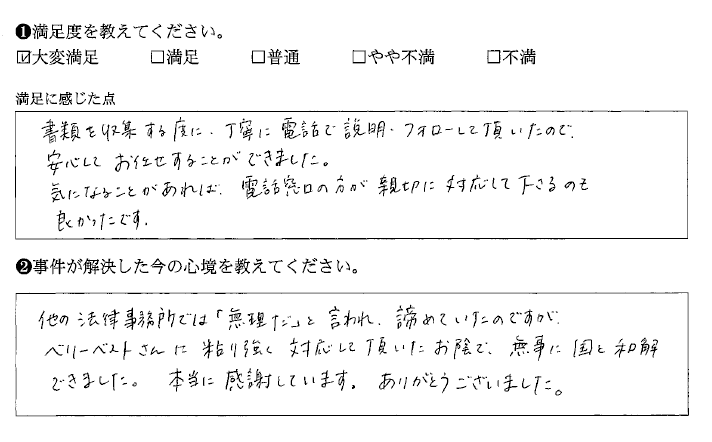 ❶満足度を教えてください。
☑大変満足 □満足 □普通 □やや不満 □不満
満足に感じた点
書類を収集する度に、丁寧に電話で説明・フォローして頂いたので、
安心してお任せすることができました。
気になることがあれば、電話窓口の方が親切に対応して下さるのも
良かったです。
❷事件が解決した今の心境を教えてください。
他の法律事務所では「無理だ」と言われ、諦めていたのですが、
ベリーベストさんに粘り強く対応して頂いたお陰で、無事に国と和解
できました。本当に感謝しています。ありがとうございました。